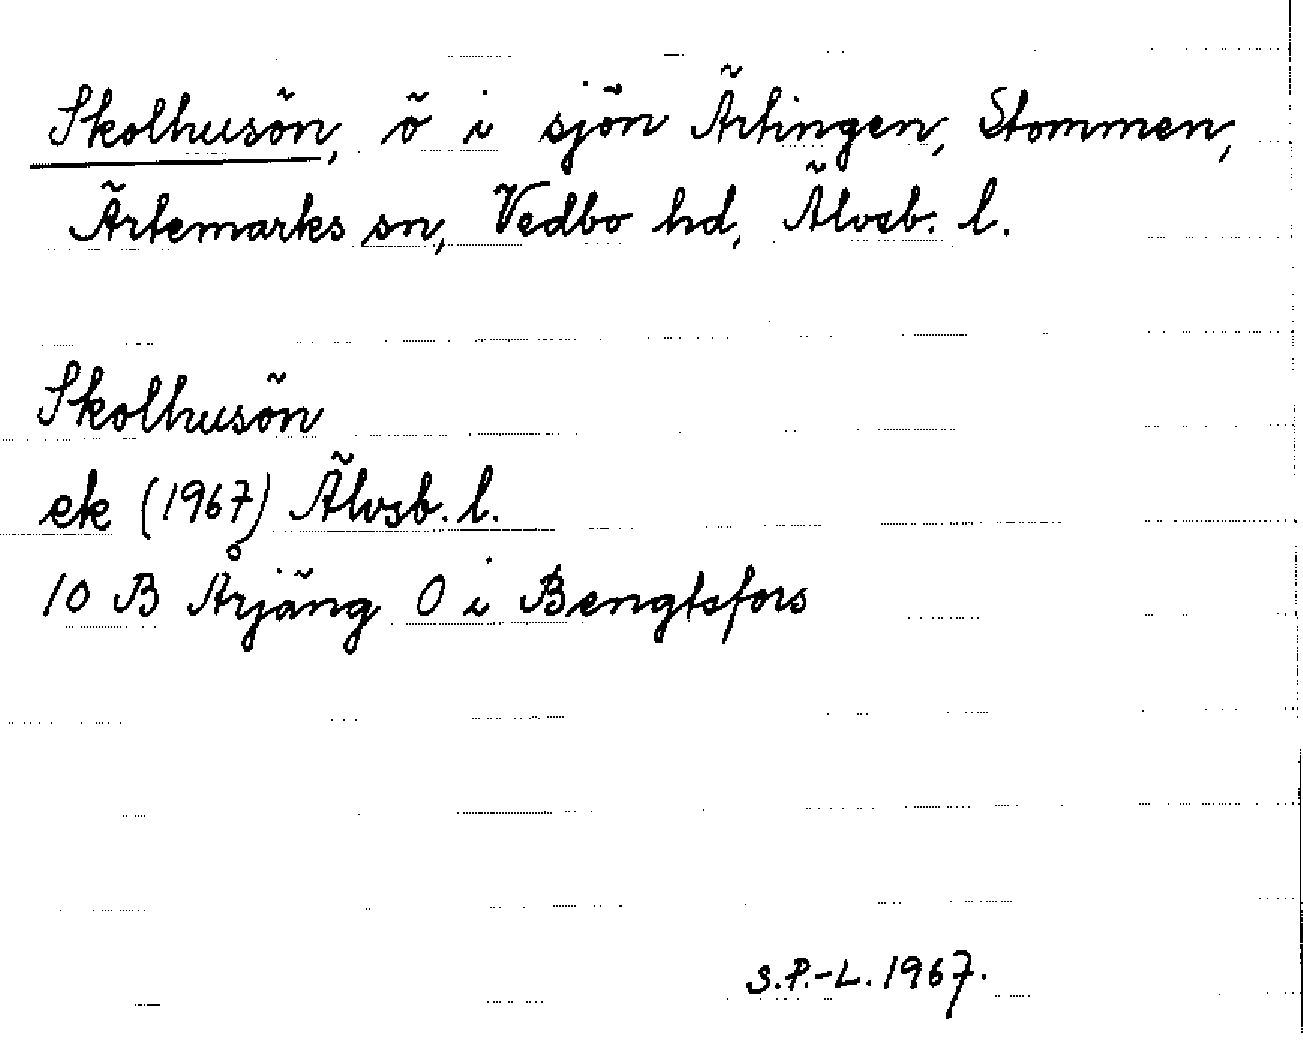 Skolhusön, ö i sjön Ärtingen, Stommen,
Ärtemarks sn, Vedbo hd, Älvsb. l.
Skolhusön
ek (1967) Älvsb. l.
10 B Årjäng O i Bengtsfors
S.P.-L. 1967.